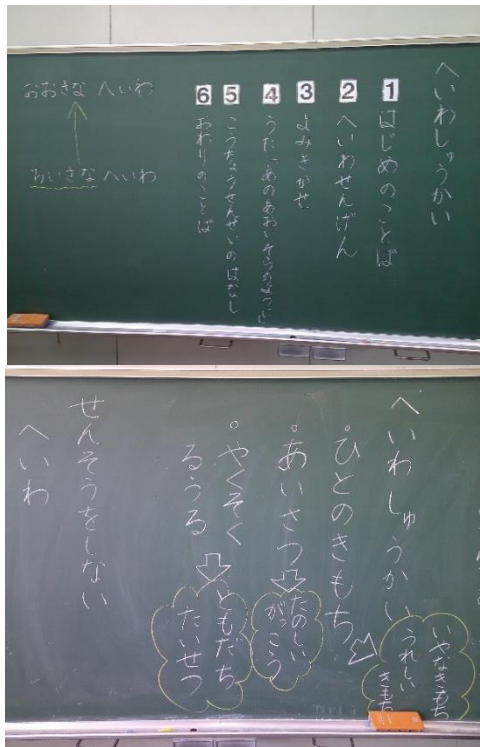 へいわしゅうかい
1 はじめのことば
2 へいわせんげん
3 よみきかせ
4 うた「あのあおいそらのように」
5 こうちょうせんせいのはなし
6 おわりのことば
おおきなへいわ
ちいさなへいわ
へいわしゅうかい
いやなきもち
うれしい
きもち
。ひとのきもち
。あいさつ
たのしい
がっこう
。やくそく
るうる
ともだち
たいせつ
せんそうをしない
へいわ